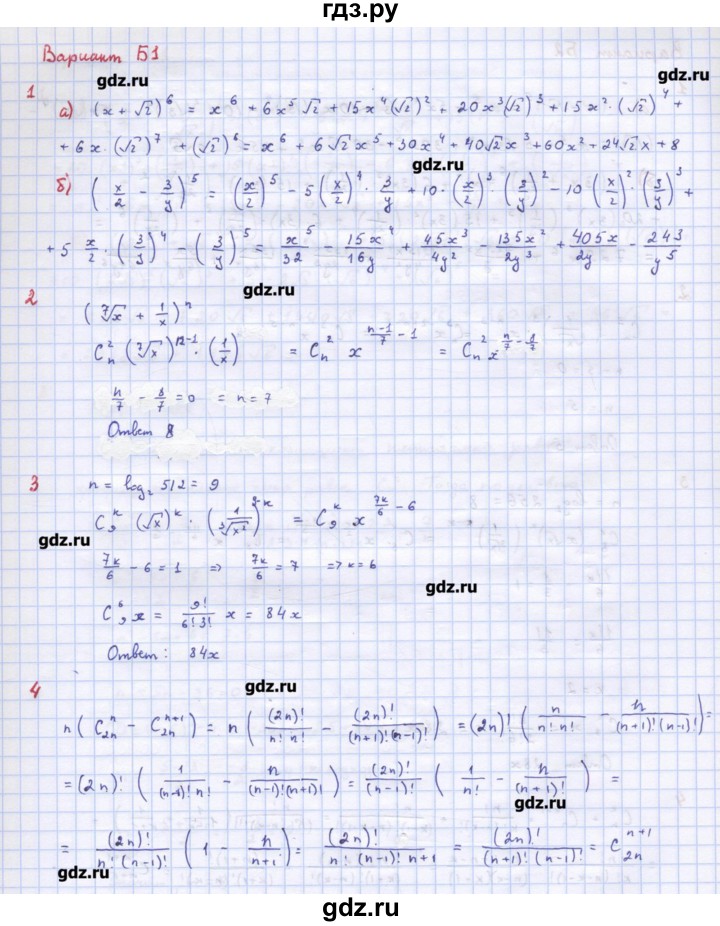 гдз.ру
Вариант Б1
gdz.ru gdz.ru
1 а) (x + √2)^6 = x^6 + 6x^5 √2 + 15x^4 (√2)^2 + 20x^3 (√2)^3 + 15x^2 · (√2)^4 +
+ 6x · (√2)^7 + (√2)^6 = x^6 + 6√2 x^5 + 30x^4 + 40√2 x^3 + 60x^2 + 24√2 x + 8
gdz.ru
б) (x/2 - 3/y)^5 = (x/2)^5 - 5 (x/2)^4 · 3/y + 10 · (x/2)^3 · (3/y)^2 - 10 · (x/2)^2 · (3/y)^3 +
+ 5 x/2 · (3/y)^4 - (3/y)^5 = x^5/32 - 15x^4/16y + 45x^3/4y^2 - 135x^2/2y^3 + 405x/2y - 243/y^5
gdz.ru
2 (⁷√x + 1/x)^n
C_n^2 (⁷√x)^n-1 · (1/x) = C_n^2 x^((n-1)/7 - 1) = C_n^2 x^(n/7 - 8/7)
n/7 - 8/7 = 0 = n = 7
Ответ 8
3 n = log_2 512 = 9
C_9^k (√x)^k · (1/³√x^2)^9-k = C_9^k x^(7k/6 - 6)
gdz.ru
7k/6 - 6 = 1 => 7k/6 = 7 => k = 6
gdz.ru
C_9^6 x = 9!/6!3! x = 84x
Ответ: 84x
gdz.ru
4 n (C_2n^n - C_2n^n+1) = n ((2n)!/n! n! - (2n)!/(n+1)!(n-1)!) = (2n)! (n/n! n! - n/(n+1)!(n-1)!) =
= (2n)! (1/(n-1)! n! - n/(n-1)!(n+1)!) = (2n)!/(n-1)! (1/n! - n/(n+1)!) =
gdz.ru
= (2n)!/n! (n-1)! (1 - n/n+1) = (2n)!/n! (n-1)! n+1 = (2n)!/(n+1)! (n-1)! = C_2n^n+1
gdz.ru
gdz.ru